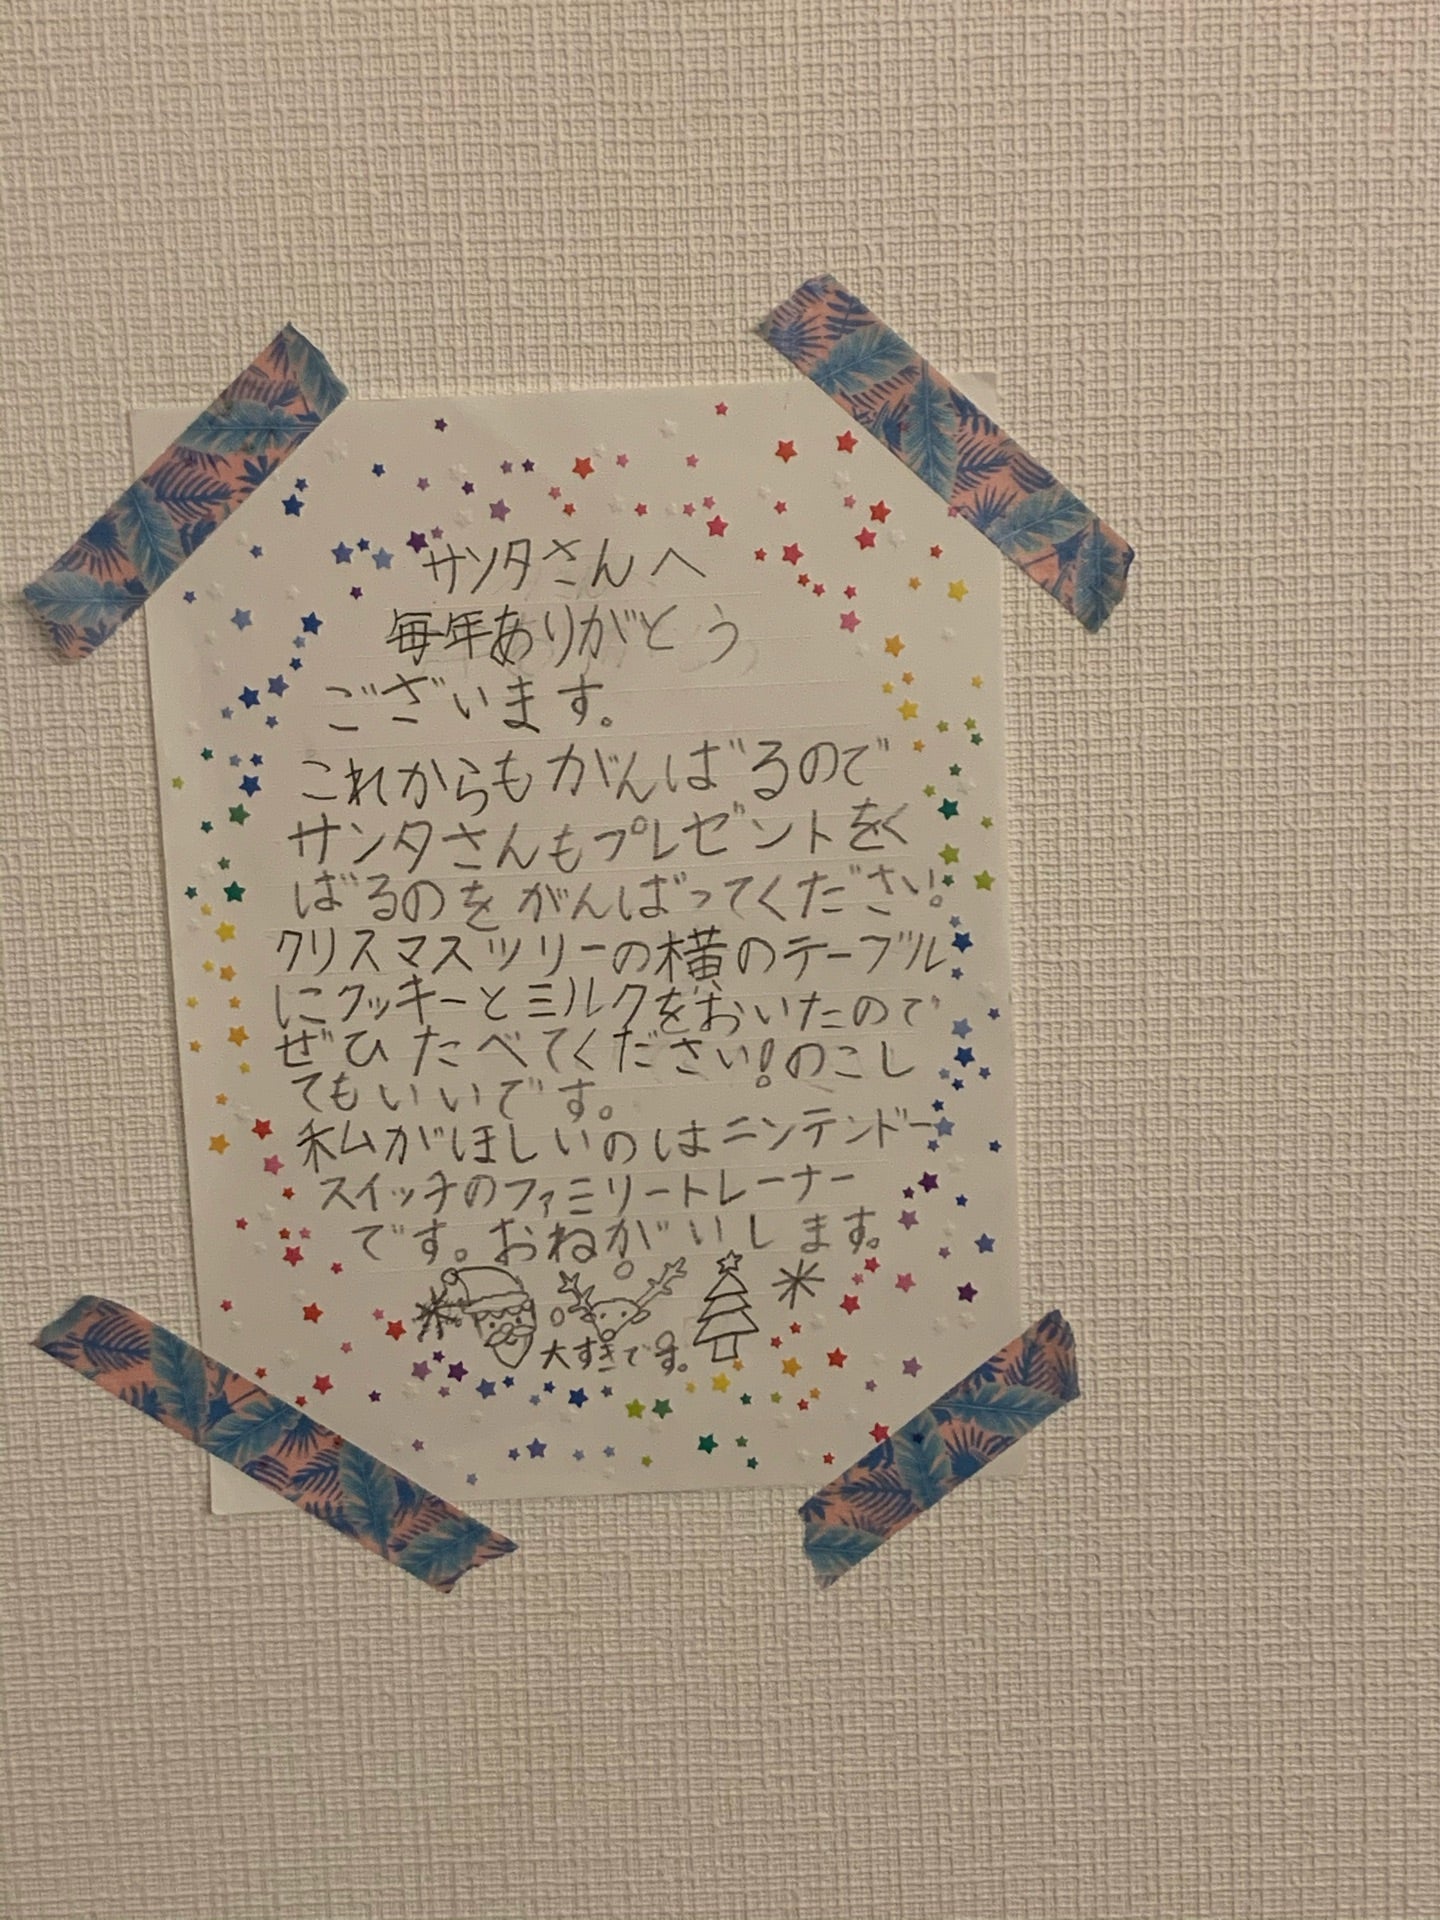 サンタさんへ
毎年ありがとう
ございます。
これからもがんばるので
サンタさんもプレゼントをく
ばるのをがんばってください!
クリスマスツリーの横のテーブル
にクッキーとミルクをおいたので
ぜひたべてください!のこし
てもいいです。
私がほしいのはニンテンドー
スイッチのファミリートレーナー
です。おねがいします。
大すきです。